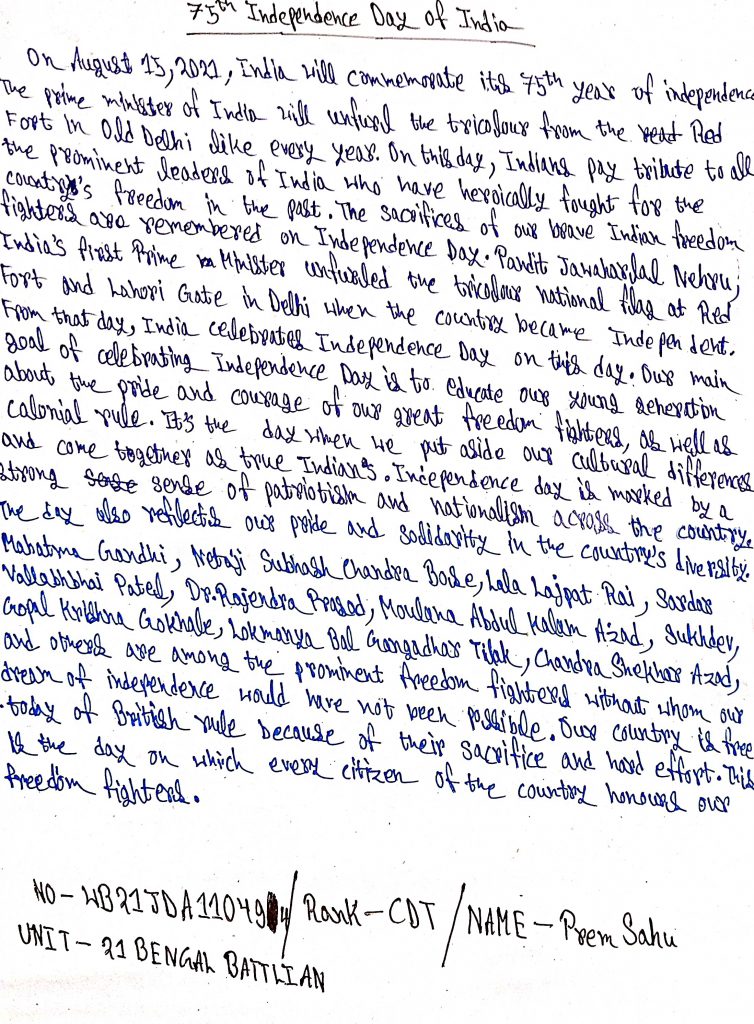 75th Independence Day of India
On August 15, 2021, India will commemorate its 75th year of independence
The prime minister of India will unfurl the tricolour from the Red
Fort in Old Delhi like every year. On this day, Indians pay tribute to all
the prominent leaders of India who have heroically fought for the
country's freedom in the past. The sacrifices of our brave Indian freedom
fighters are remembered on Independence Day. Pandit Jawaharlal Nehru,
India's first Prime Minister unfurled the tricolour national flag at Red
Fort and Lahori Gate in Delhi when the country became Independent.
From that day, India celebrates Independence Day on this day. Our main
goal of celebrating Independence Day is to educate our young generation
about the pride and courage of our great freedom fighters, as well as
calonial rule. It's the day when we put aside our cultural differences
and come together as true Indian's. Independence day is marked by a
strong sense of patriotism and nationalism across the country.
The day also reflects our pride and solidarity in the country's diversity.
Mahatma Gandhi, Netaji Subhash Chandra Bose, Lala Lajpat Rai, Sardar
Vallabhbhai Patel, Dr. Rajendra Prasad, Moulana Abdul Kalam Azad, Sukhdev,
Gopal Krishna Gokhale, Lokmanya Bal Gangadhar Tilak, Chandra Shekhar Azad,
and others are among the prominent freedom fighters without whom our
dream of independence would have not been possible. Our country is free
today of British rule because of their sacrifice and hard effort. This
is the day on which every citizen of the country honours our
freedom fighters.
NO - WB21JDA11049 / Rank - CDT / NAME - Prem Sahu
UNIT - 21 BENGAL BATTLIAN